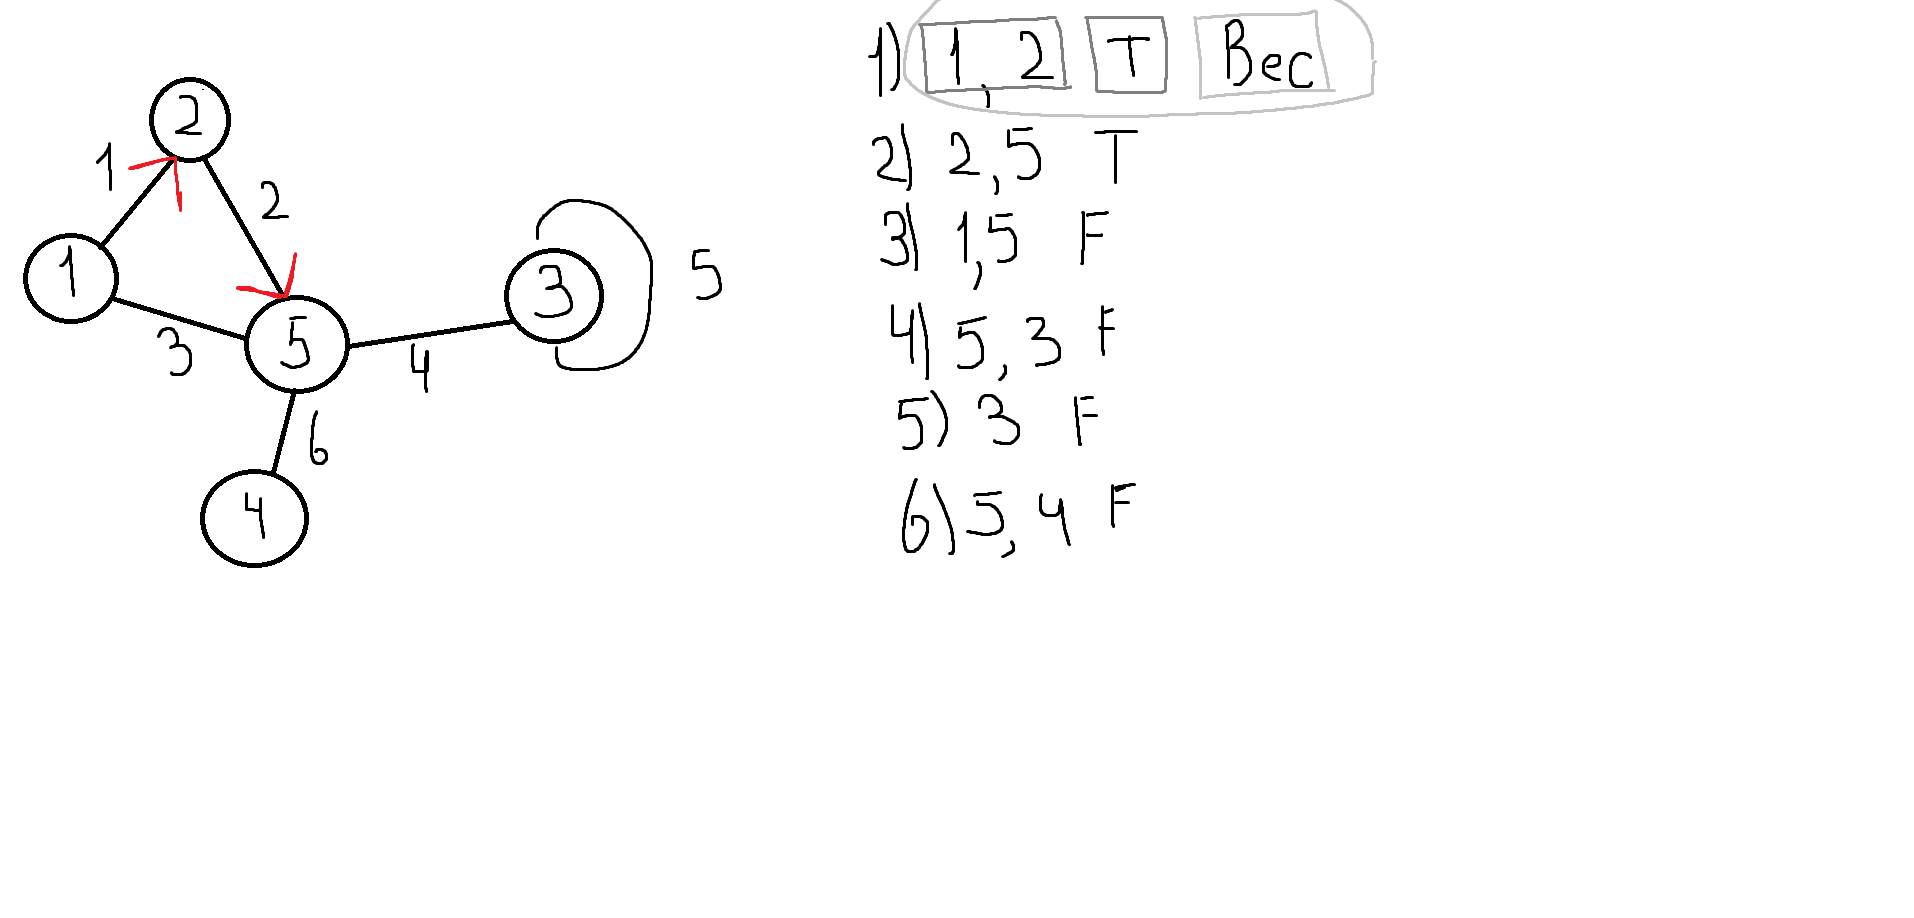 2
1
2
1
3
5
4
3
5
6
4
1) 1, 2 T Вес
2) 2,5 T
3) 1,5 F
4) 5, 3 F
5) 3 F
6) 5, 4 F